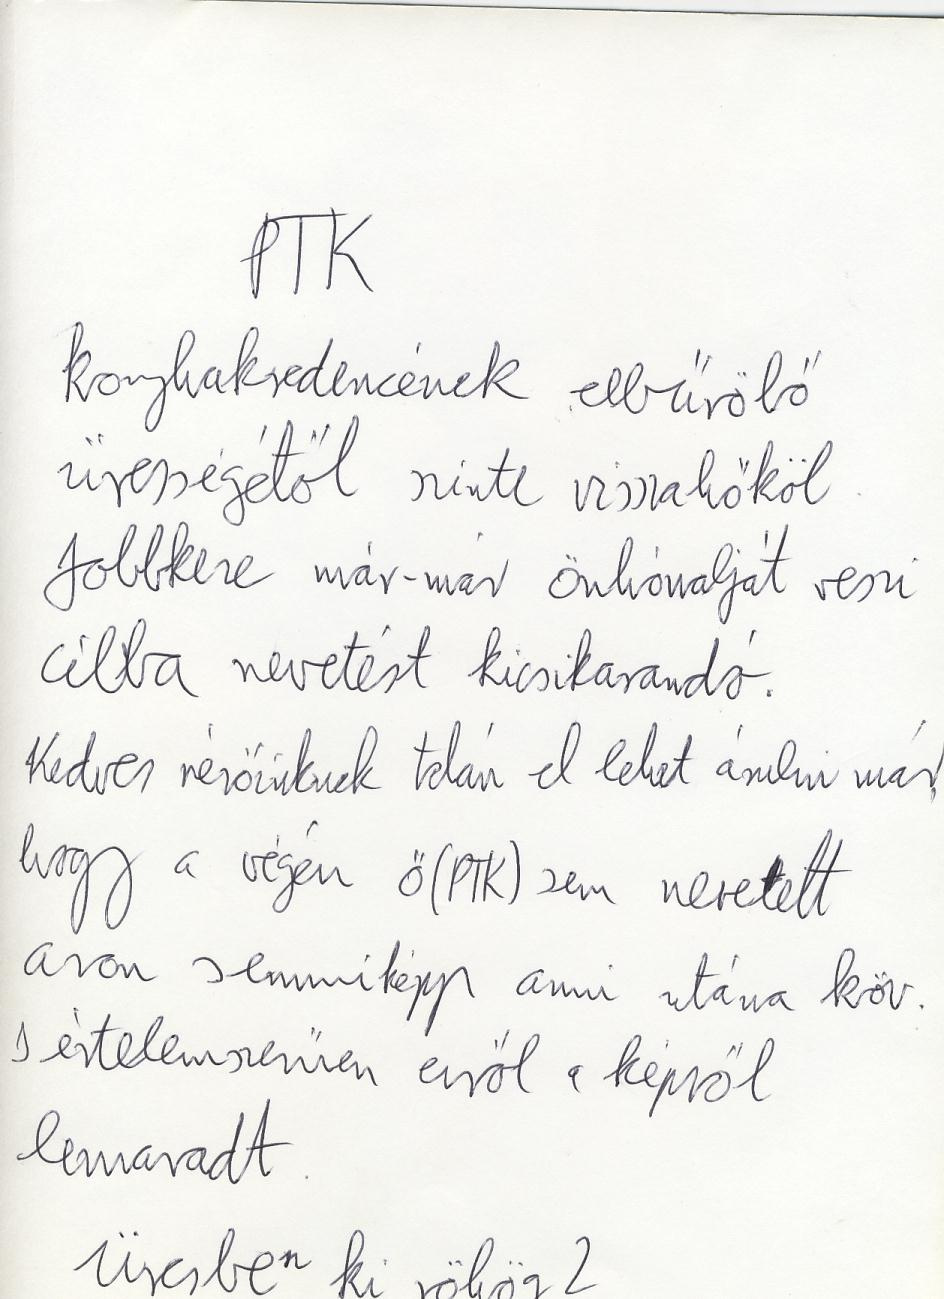 PTK
konyhakredencének elbűvölő
ürességétől szinte visszahőköl.
Jobbkeze már-már önhónalját veszi
célba nevetést kicsikarandó.
Kedves nézőinknek talán el lehet árulni már,
hogy a végén ő (PTK) sem nevetett
azon semmiképp ami utána köv.
s értelemszerűen erről a képről
lemaradt.
üresben ki röhög?